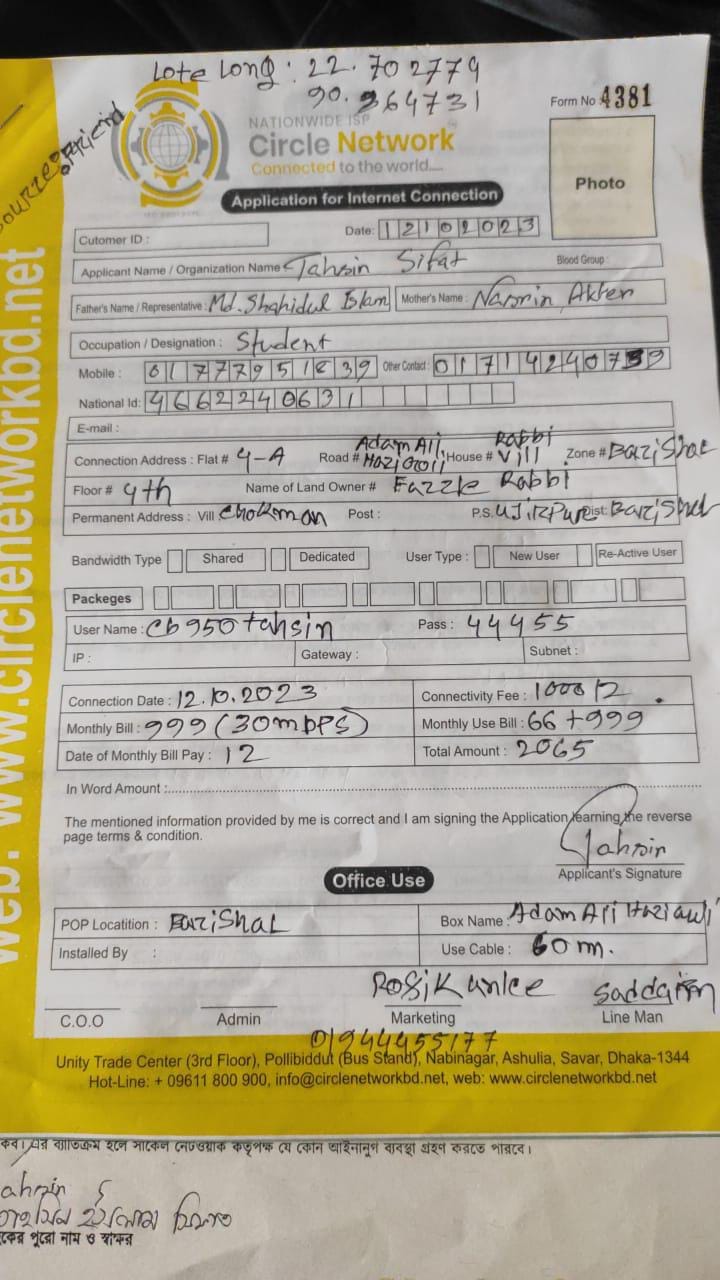 Lote Long : 22.702779
90.364731
Source: Office
Form No 4381
NATIONWIDE ISP
Circle Network
Connected to the world....
Photo
Application for Internet Connection
Cutomer ID :
Date: 12102023
Applicant Name / Organization Name Tahsin Sifat Blood Group :
Father's Name / Representative : Md. Shahidul Islam Mother's Name : Nasrin Akter
Occupation / Designation : Student
Mobile : Other Contact :
National Id: 4662240631
E-mail :
Connection Address : Flat # 4-A Road # Adam Ali Hazi Goli House # Rabbi Vill Zone # Barishal
Floor # 4th Name of Land Owner # Fazzle Rabbi
Permanent Address : Vill Post : P.S. Ujirpur Dist: Barishal
Bandwidth Type Shared Dedicated User Type : New User Re-Active User
Packeges
User Name : cb950tahsin Pass : 44455
IP : Gateway : Subnet :
Connection Date : 12.10.2023 Connectivity Fee : 1000/2
Monthly Bill : 999 (30mbps) Monthly Use Bill : 66+999
Date of Monthly Bill Pay : 12 Total Amount : 2065
In Word Amount :
The mentioned information provided by me is correct and I am signing the Application learning the reverse
page terms & condition.
Tahsin
Applicant's Signature
Office Use
POP Locatition : Barishal Box Name : Adam Ali Hazi
Installed By : Use Cable : 60m.
C.O.O Admin Marketing Line Man
01944455177
Unity Trade Center (3rd Floor), Pollibiddut (Bus Stand), Nabinagar, Ashulia, Savar, Dhaka-1344
Hot-Line: + 09611 800 900, info@circlenetworkbd.net, web: www.circlenetworkbd.net
web: www.circlenetworkbd.net
এর ব্যতিক্রম হলে সার্কেল নেটওয়াক কতৃপক্ষ যে কোন আইনানুগ ব্যবস্থা গ্রহণ করতে পারবে।
ahsin
তাহসিন ইসলাম সিফাত
কের পুরো নাম ও স্বাক্ষর